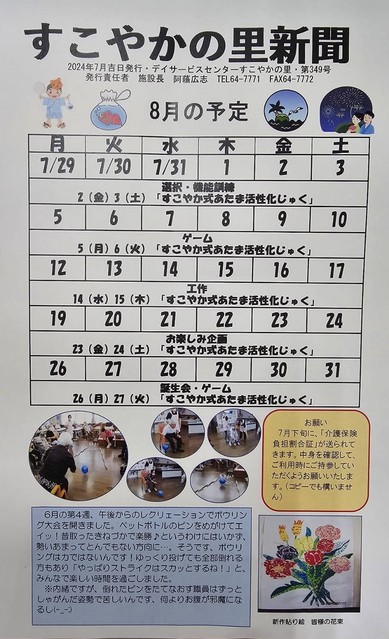 すこやかの里新聞
2024年7月吉日発行・デイサービスセンターすこやかの里・第349号
発行責任者 施設長 阿蘓広志 TEL64-7771 FAX64-7772
8月の予定
月 火 水 木 金 土
7/29 7/30 7/31 1 2 3
選択・機能訓練
2(金)3(土)「すこやか式あたま活性化じゅく」
5 6 7 8 9 10
ゲーム
5(月)6(火)「すこやか式あたま活性化じゅく」
12 13 14 15 16 17
工作
14(水)15(木)「すこやか式あたま活性化じゅく」
19 20 21 22 23 24
お楽しみ企画
23(金)24(土)「すこやか式あたま活性化じゅく」
26 27 28 29 30 31
誕生会・ゲーム
26(月)27(火)「すこやか式あたま活性化じゅく」
お願い
7月下旬に、「介護保険
負担割合証」が送られ
てきます。中身を確認して、
ご利用時にご持参してい
ただくようお願いいたしま
す。(コピーでも構いませ
ん)
6月の第4週、午後からのレクリェーションでボウリン
グ大会を開きました。ペットボトルのピンをめがけてエ
イッ！昔取ったきねづかで楽勝♪というわけにはいかず、
勢いあまってとんでもない方向に…。そうです、ボウリ
ングは力ではないんです！ゆっくり投げても全部倒れる
方もあり「やっぱりストライクはスカッとするね！」と、
みんなで楽しい時間を過ごしました。
※内緒ですが、倒れたピンをたてなおす職員はずっと
しゃがんだ姿勢で苦しいんです、何よりお腹が邪魔にな
るし(-_-)
新作貼り絵 皆様の花束